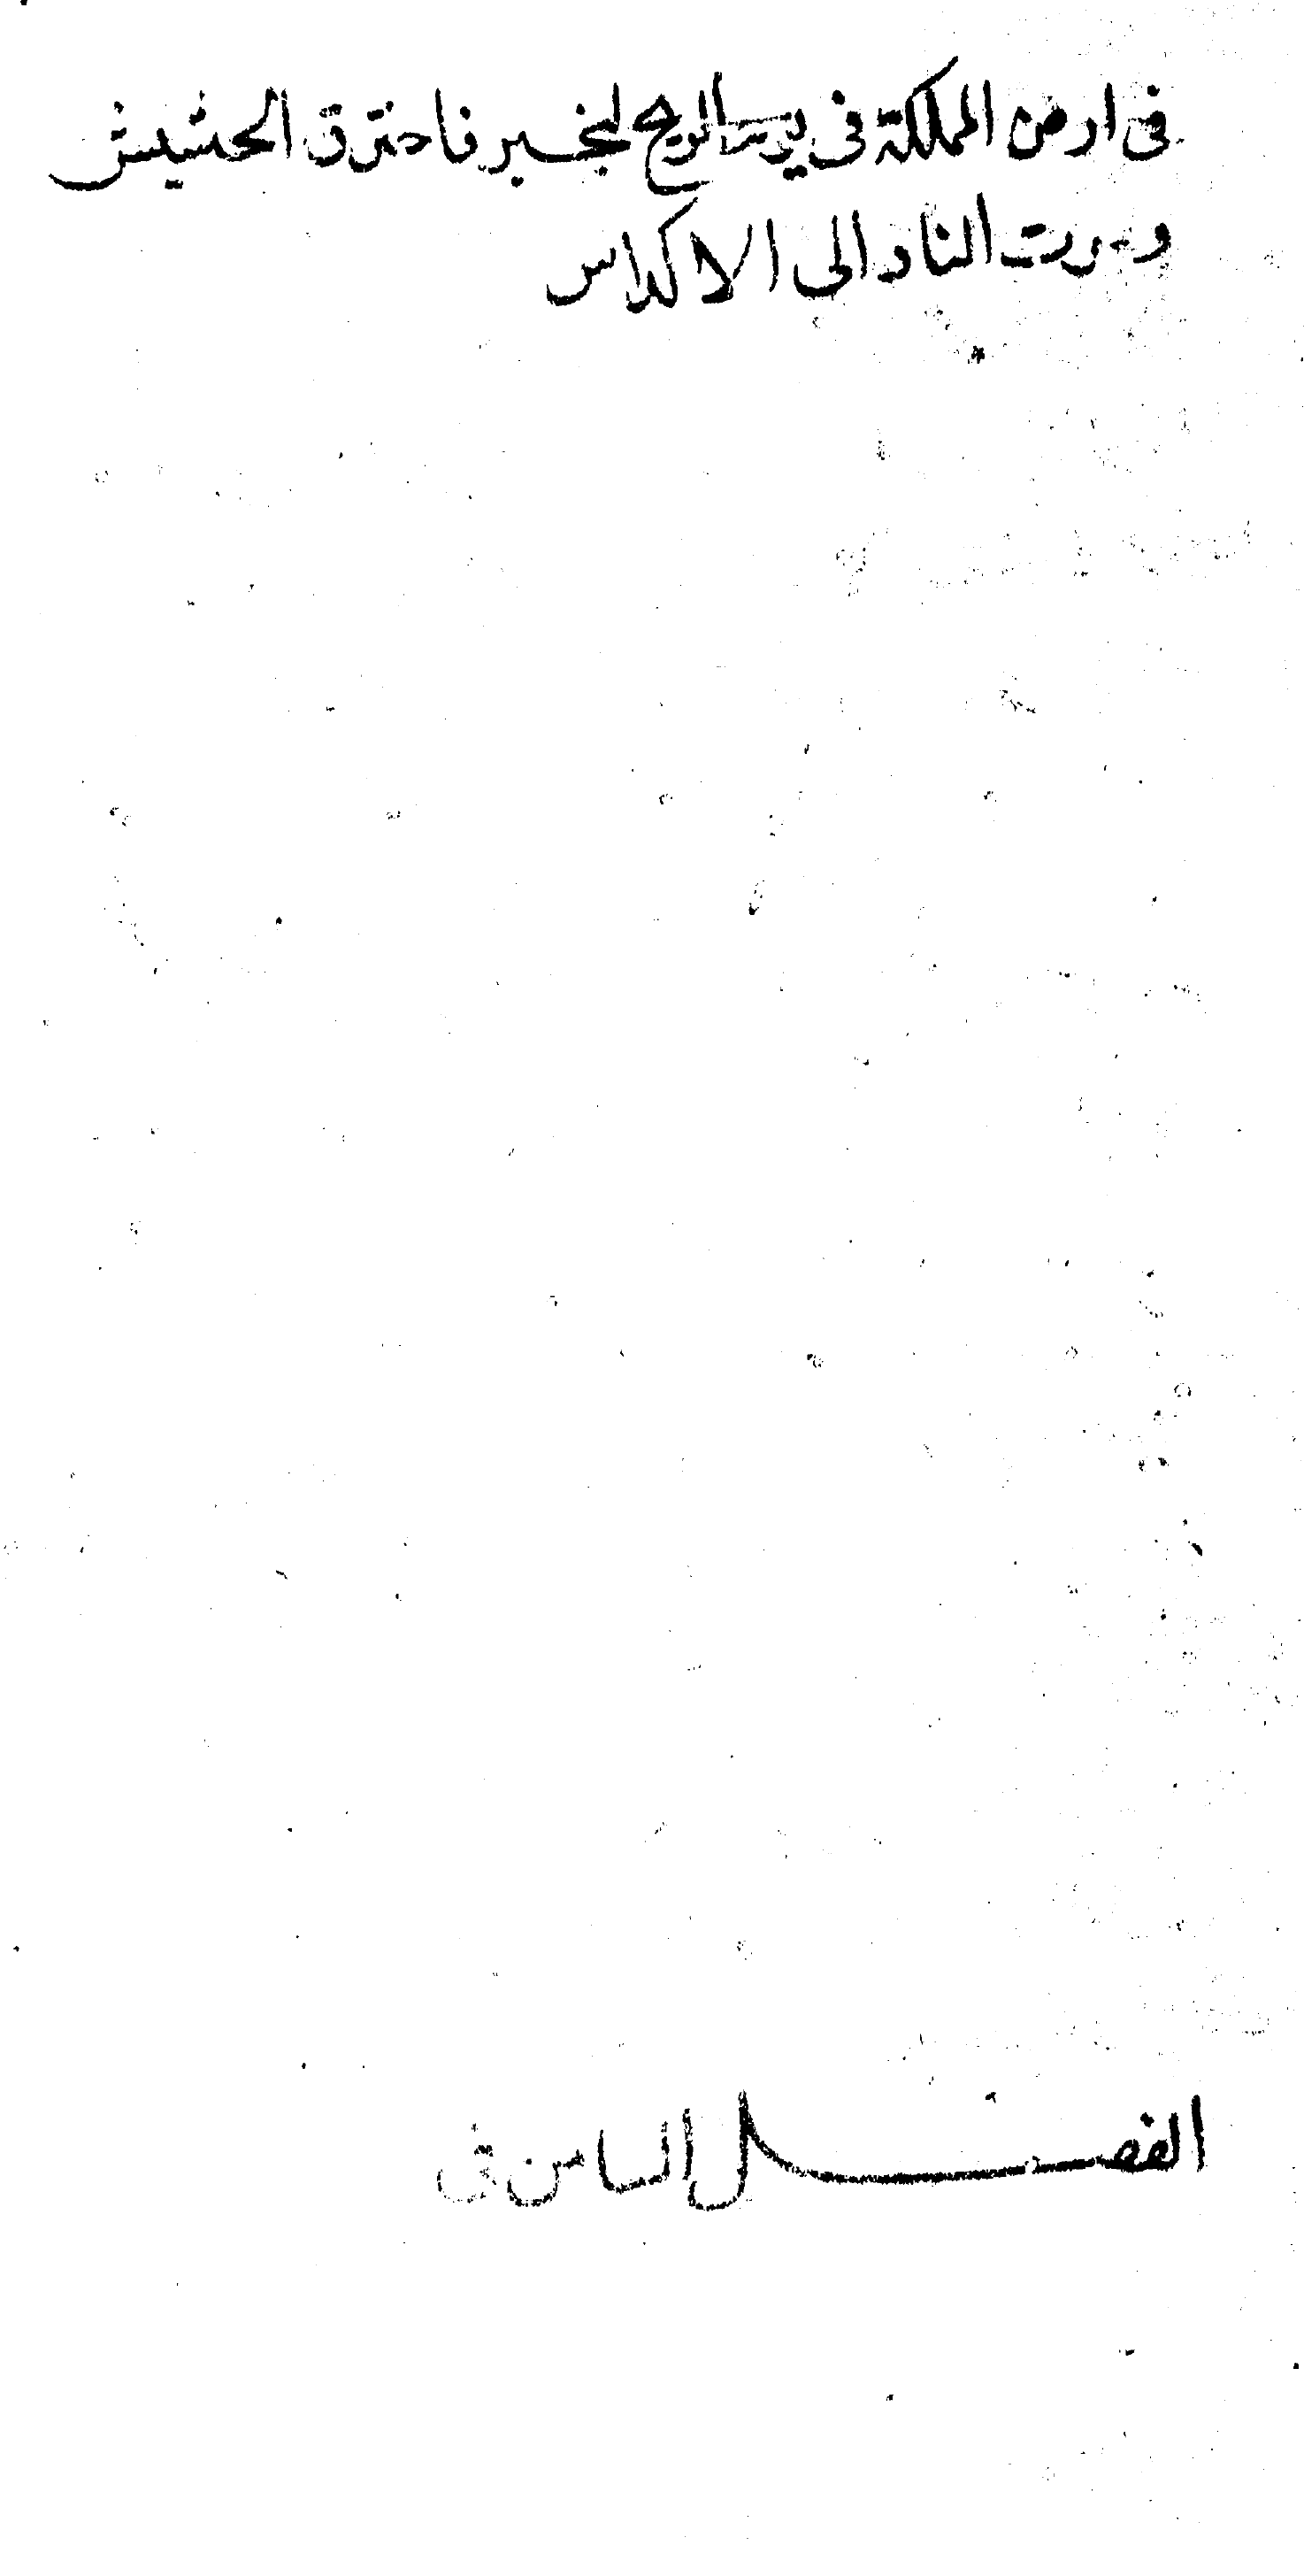 فى ارض المملكة فى يوم الريح لخبير فاحترق الحشيش
ومرت النار الى الاكداس
الفصل الثامن فى